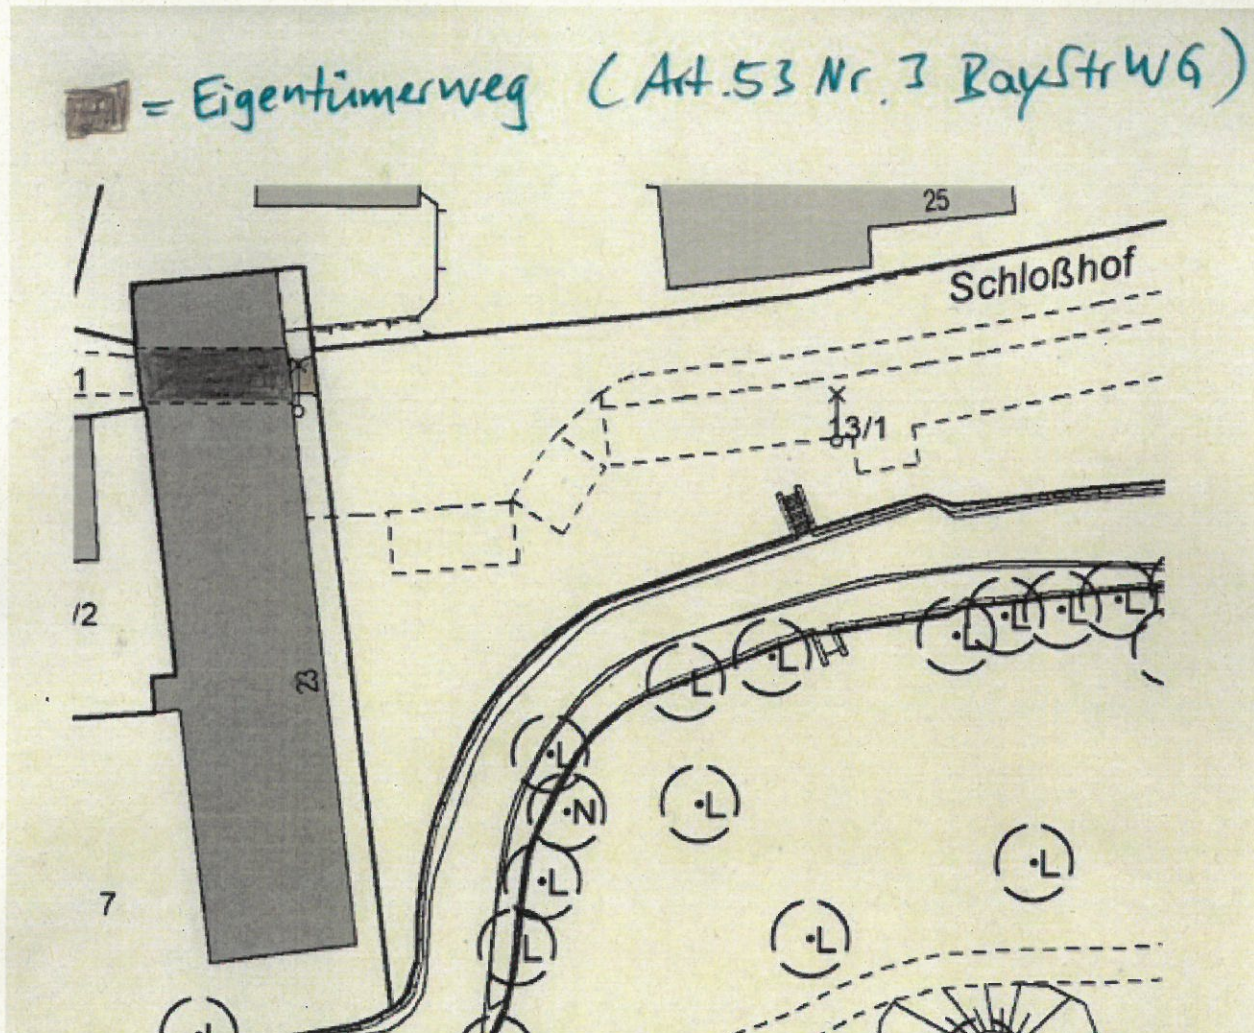 = Eigentümerweg (Art. 53 Nr. 3 BayStrWG)
25
Schloßhof
1
13/1
/2
L
L
L
L
L
L
L
23
L
N
L
L
L
L
L
7
L